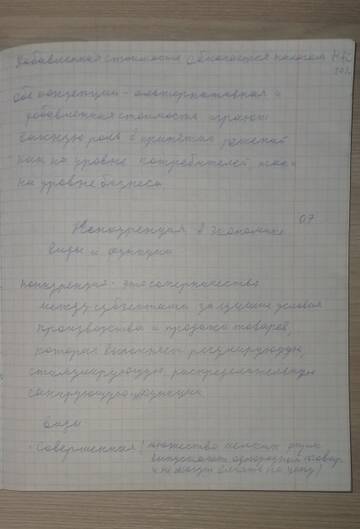 Добавленная стоимость облагается налогом НДС
20%
Обе концепции - альтернативная и
добавленная стоимость играют
важную роль в принятии решений
как на уровне потребителей, так и
на уровне бизнеса.
07
Конкуренция в экономике
виды и функции
Конкуренция - это соперничество
между субъектами за лучшие условия
производства и продажи товаров,
которые выполняет регулирующую,
стимулирующую, распределительную
санкирующую функции
Виды
· Совершенная (множество мелких фирм
выпускают однородный товар
и не могут влиять на цену)